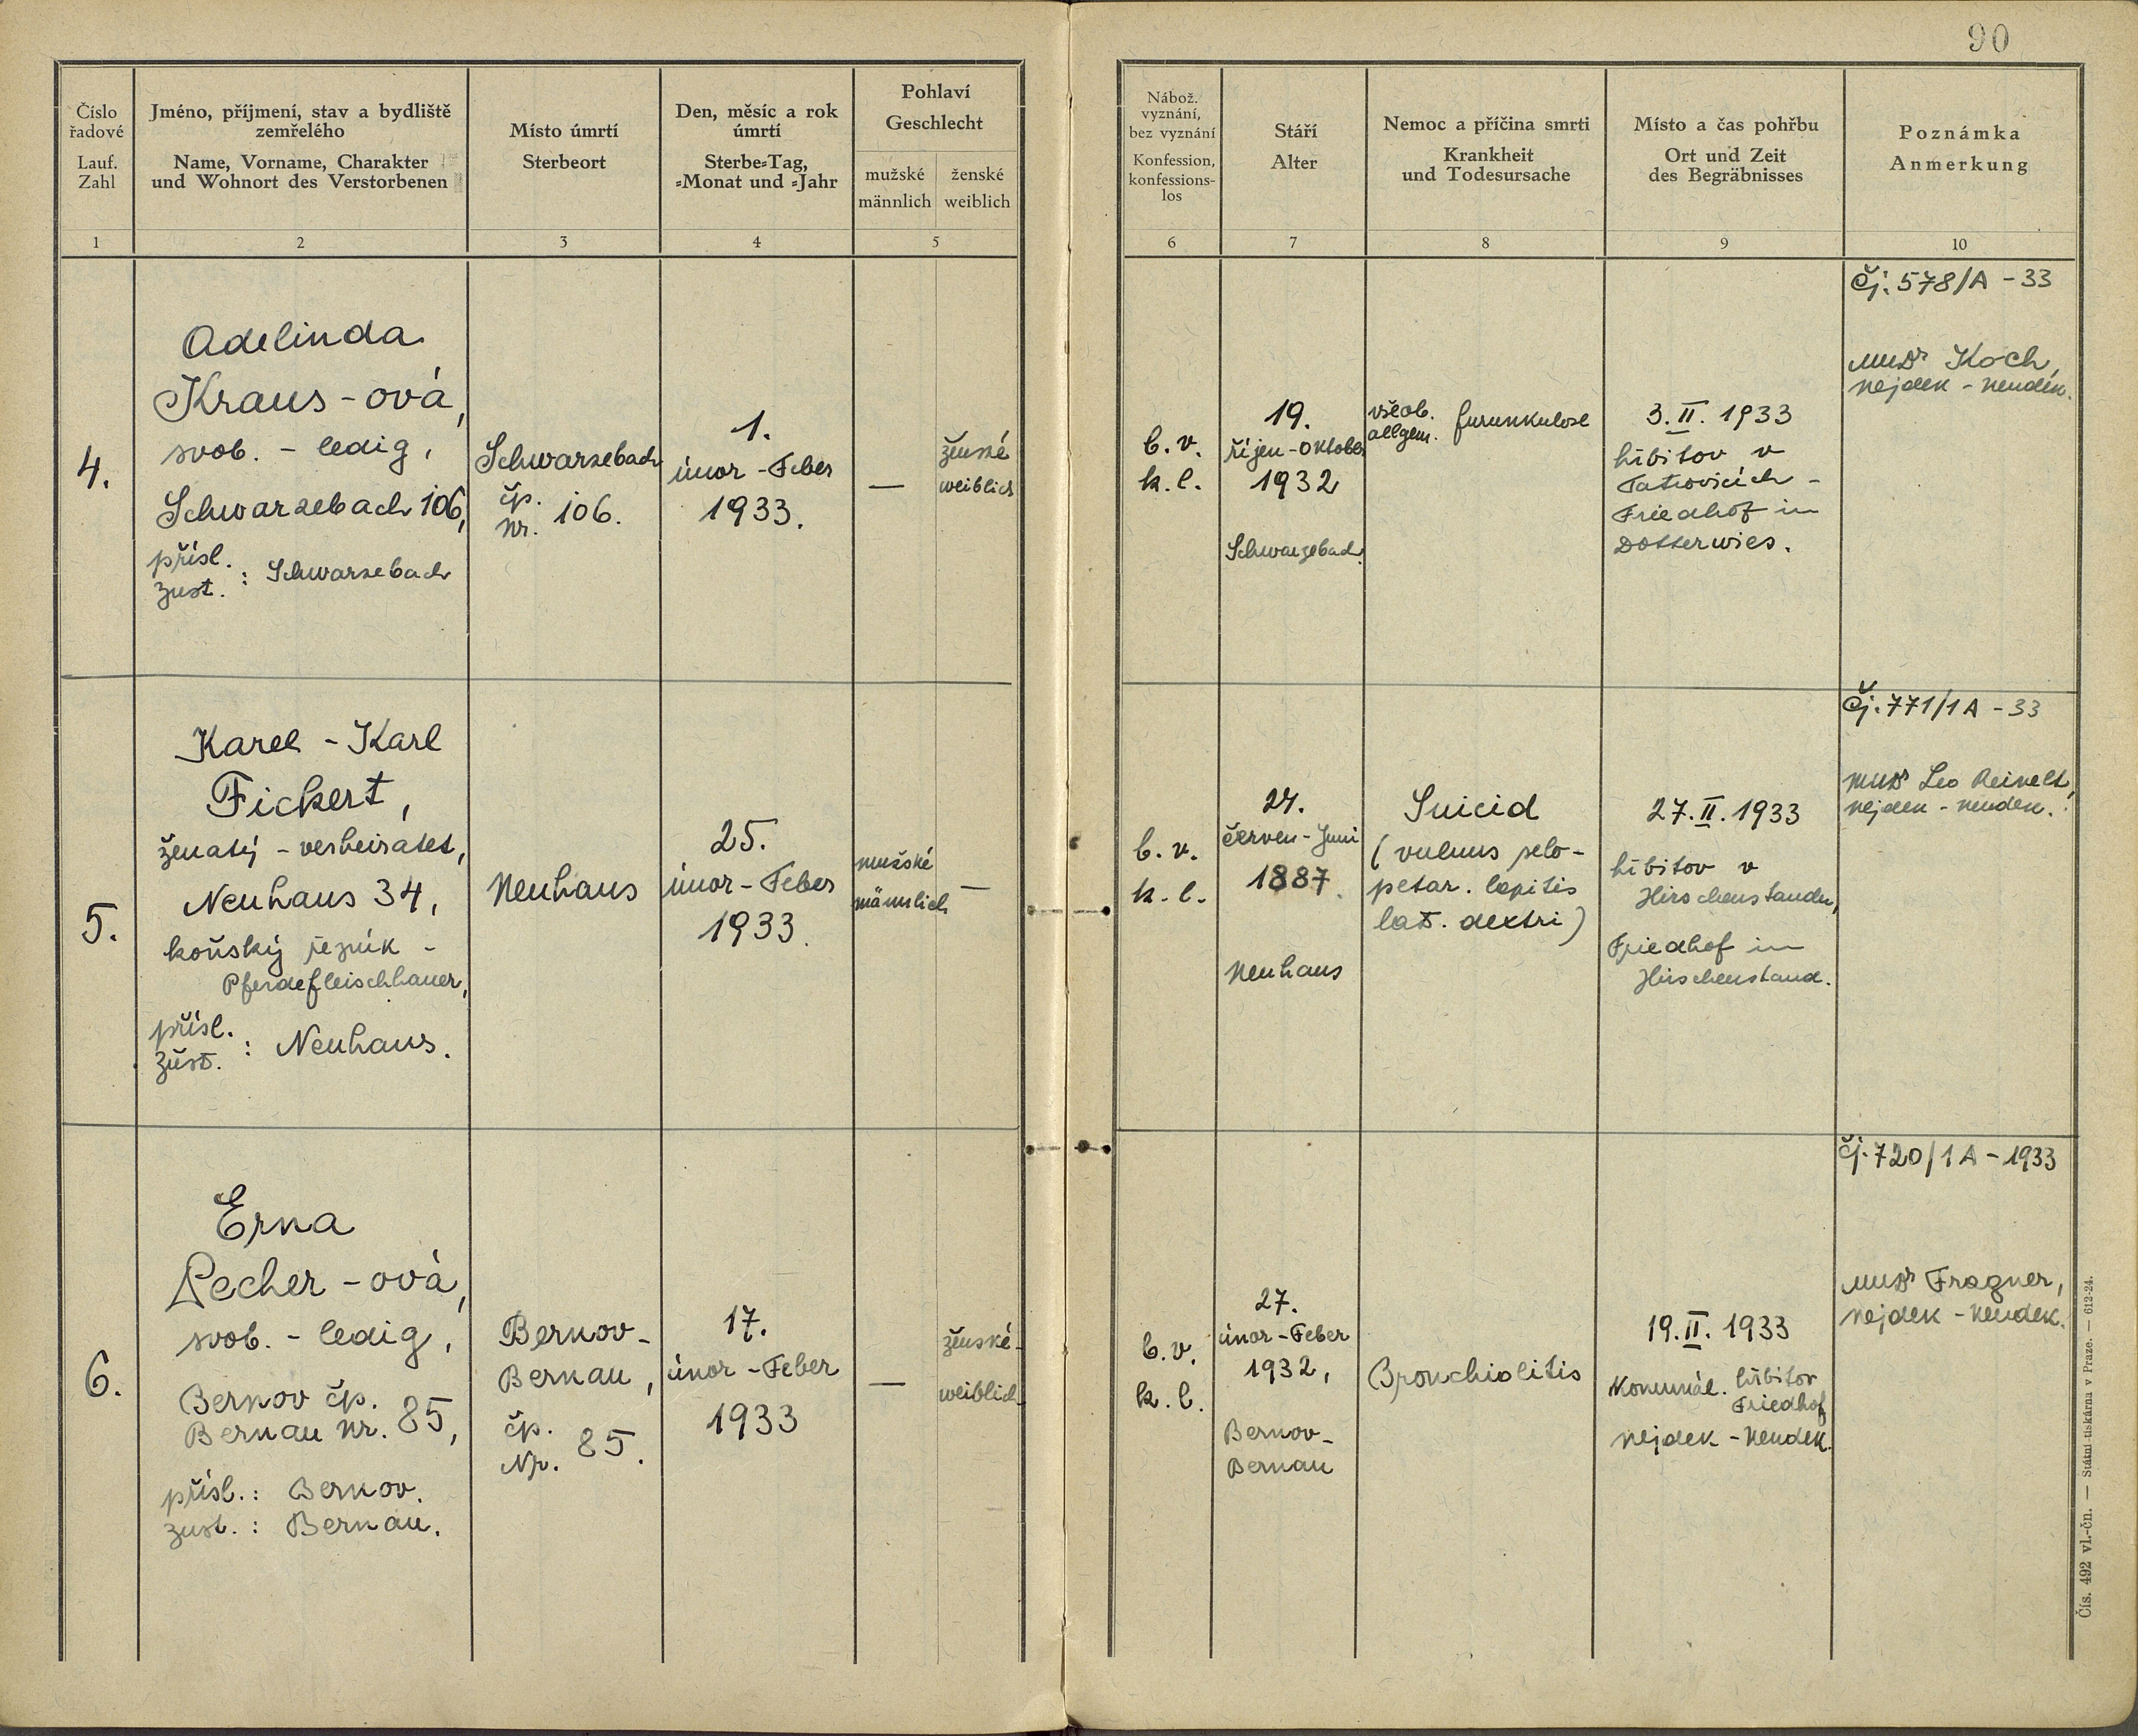 90
Číslo
řadové
Lauf.
Zahl
1
Jméno, příjmení, stav a bydliště
zemřelého
Name, Vorname, Charakter
und Wohnort des Verstorbenen
2
Místo úmrtí
Sterbeort
3
Den, měsíc a rok
úmrtí
Sterbe=Tag,
=Monat und =Jahr
4
Pohlaví
Geschlecht
mužské
männlich
ženské
weiblich
5
Nábož.
vyznání,
bez vyznání
Konfession,
konfessions-
los
6
Stáří
Alter
7
Nemoc a příčina smrti
Krankheit
und Todesursache
8
Místo a čas pohřbu
Ort und Zeit
des Begräbnisses
9
Poznámka
Anmerkung
10
4.
Adelinda
Kraus-ová,
svob. - ledig,
Schwarzebach 106,
přísl.
zust. : Schwarzebach
Schwarzebach
čp.
Nr. 106.
1.
únor - Feber
1933.
—
ženské
weiblich
b. v.
k. l.
19.
říjen - Oktober
1932
Schwarzebach.
všeob.
allgem. furunkulose
3. II. 1933
hřbitov v
Tatrovicích -
Friedhof in
Dotterwies.
Čj. 578/A - 33
MUDr Koch,
Nejdek - Neudek.
5.
Karel - Karl
Fickert,
ženatý - verheiratet,
Neuhaus 34,
koňský řezník -
Pferdefleischhauer,
přísl.
zust. : Neuhaus.
Neuhaus
25.
únor - Feber
1933.
mužské
männlich
—
b. v.
k. l.
24.
červen - Juni
1887.
Neuhaus
Suicid
(vulnus sclo-
petar. capitis
lat. dextri)
27. II. 1933
hřbitov v
Hirschenstandu,
Friedhof in
Hirschenstand.
Čj. 771/1A - 33
MUDr Leo Reinelt,
Nejdek - Neudek.
6.
Erna
Pecher - ová,
svob. - ledig,
Bernov čp.
Bernau Nr. 85,
přísl. : Bernov.
zust. : Bernau.
Bernov -
Bernau,
čp.
Nr. 85.
17.
únor - Feber
1933
—
ženské -
weiblich.
b. v.
k. l.
27.
únor - Feber
1932,
Bernov -
Bernau
Bronchiolitis
19. II. 1933
Komunál. hřbitov
Friedhof
Nejdek - Neudek.
čj. 720/1A - 1933
MUDr Fragner,
Nejdek - Neudek.
Čís. 492 vl.-čn. — Státní tiskárna v Praze. — 612-24.